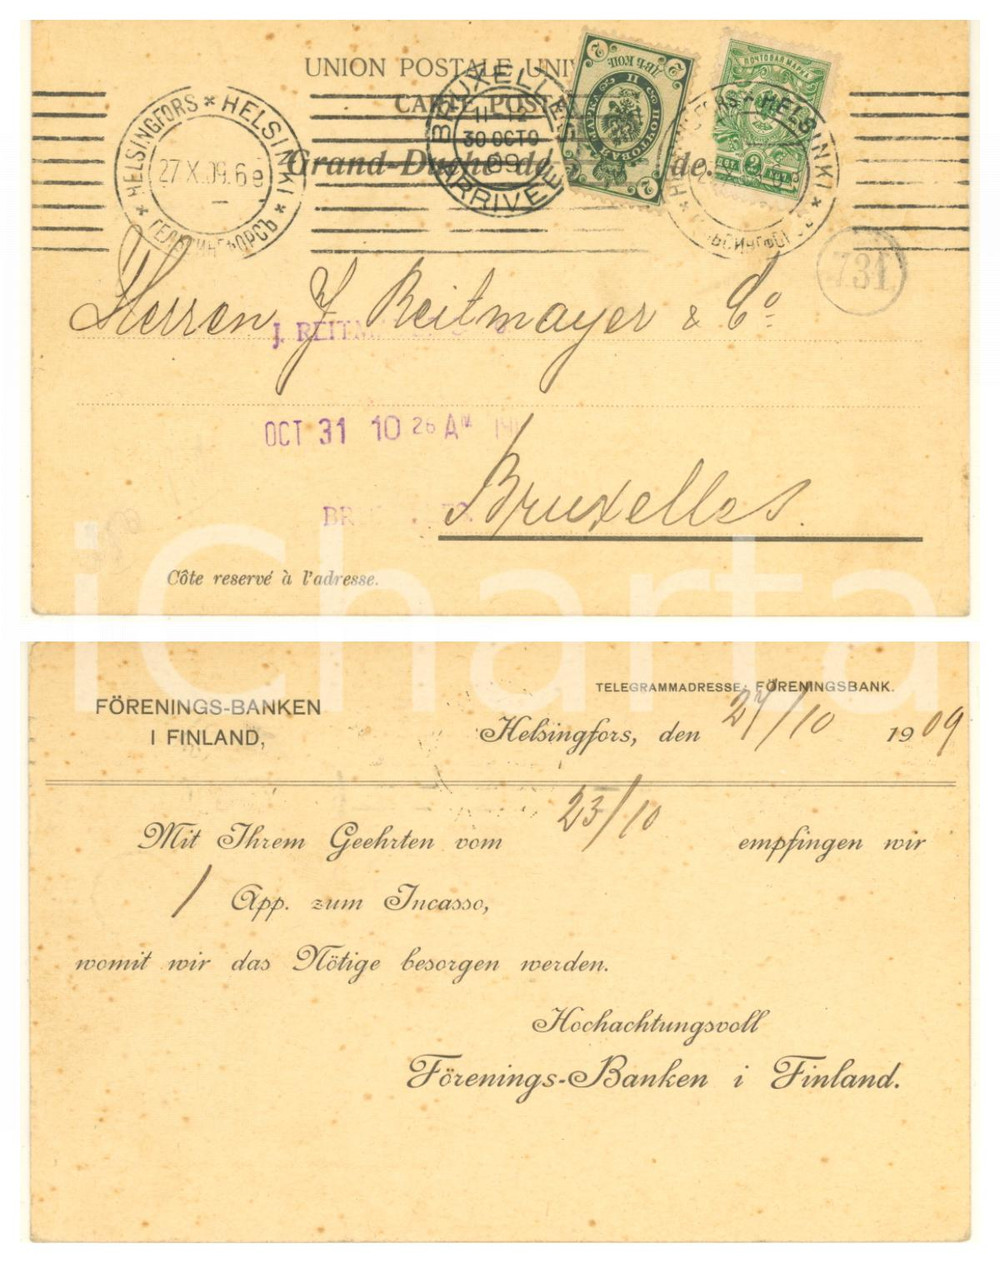 UNION POSTALE UNI
CARTE POST
Grand-Duché de de.
HELSINGFORS * HELSINKI *
27 X.09.6 e
BRUXELLES
11-12
30 OCTO
09
ARRIVEE
ПОЧТОВАЯ МАРКА
2
HELSINKI
731
Herren J. Reitmayer & Co
J. REIT
OCT 31 10 26 AM
Bruxelles.
Côte reservé à l'adresse.
iCharta
TELEGRAMMADRESSE: FÖRENINGSBANK.
FÖRENINGS-BANKEN
I FINLAND,
Helsingfors, den 27/10 1909
Mit Ihrem Geehrten vom 23/10 empfingen wir
1 App. zum Incasso,
womit wir das Nötige besorgen werden.
Hochachtungsvoll
Förenings-Banken i Finland.